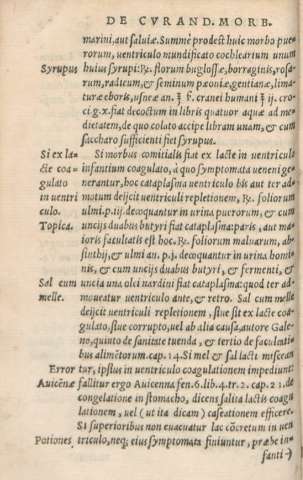 DE CVRAND. MORB.
marini, aut saluiæ. Summè prodest huic morbo pue=
rorum, ventriculo mundificato cochlearium unum
Syrupus huius syrupi: ℞. florum buglossæ, borraginis, rosa=
rum, radicum, & seminum pæoniæ, gentianæ, lima=
turæ eboris, usneæ an. ℥ ß. cranei humani ℥ ij. cro=
ci.g.x. fiat decoctum in libris quatuor aquæ ad me=
dietatem, de quo colato accipe libram unam, & cum
saccharo sufficienti fiet syrupus.
Si ex la= Si morbus comitialis fiat ex lacte in uentriculo
cte coa= infantium coagulato, à quo symptomata ueneni ge=
gulato nerantur, hoc cataplasma ventriculo bis aut ter ad=
in uentri motum deijcit uentriculi repletionem, ℞. foliorum
culo. ulmi.p.iij. decoquantur in urina puerorum, & cum
Topica. uncijs duabus butyri fiat cataplasma: paris, aut ma=
ioris facultatis est hoc. ℞. foliorum maluarum, ab=
sinthij, & ulmi an. p.j. decoquantur in urina homi=
nis, & cum uncijs duabus butyri, & fermenti, &
Sal cum uncia una olei nardini fiat cataplasma: quod ter ad=
melle. moueatur uentriculo ante, & retro. Sal cum melle
deijcit uentriculi repletionem, siue sit ex lacte coa=
gulato, siue corrupto, uel ab alia causa, autore Gale=
no, quinto de sanitate tuenda, & tertio de facultati=
bus alimẽtorum.cap.14. Si mel & sal lacti miscean
Error tur, ipsius in uentriculo coagulationem impediunt:
Auicẽnæ fallitur ergo Auicenna fen.6.lib.4.tr.2.cap.21.de
congelatione in stomacho, dicens, salia lactis coagu
lationem, uel (ut ita dicam) caseationem efficere.
Si superioribus non euacuatur lac cõcretum in uen
Potiones triculo, neq; eius symptomata finiuntur, præbe in=
fanti